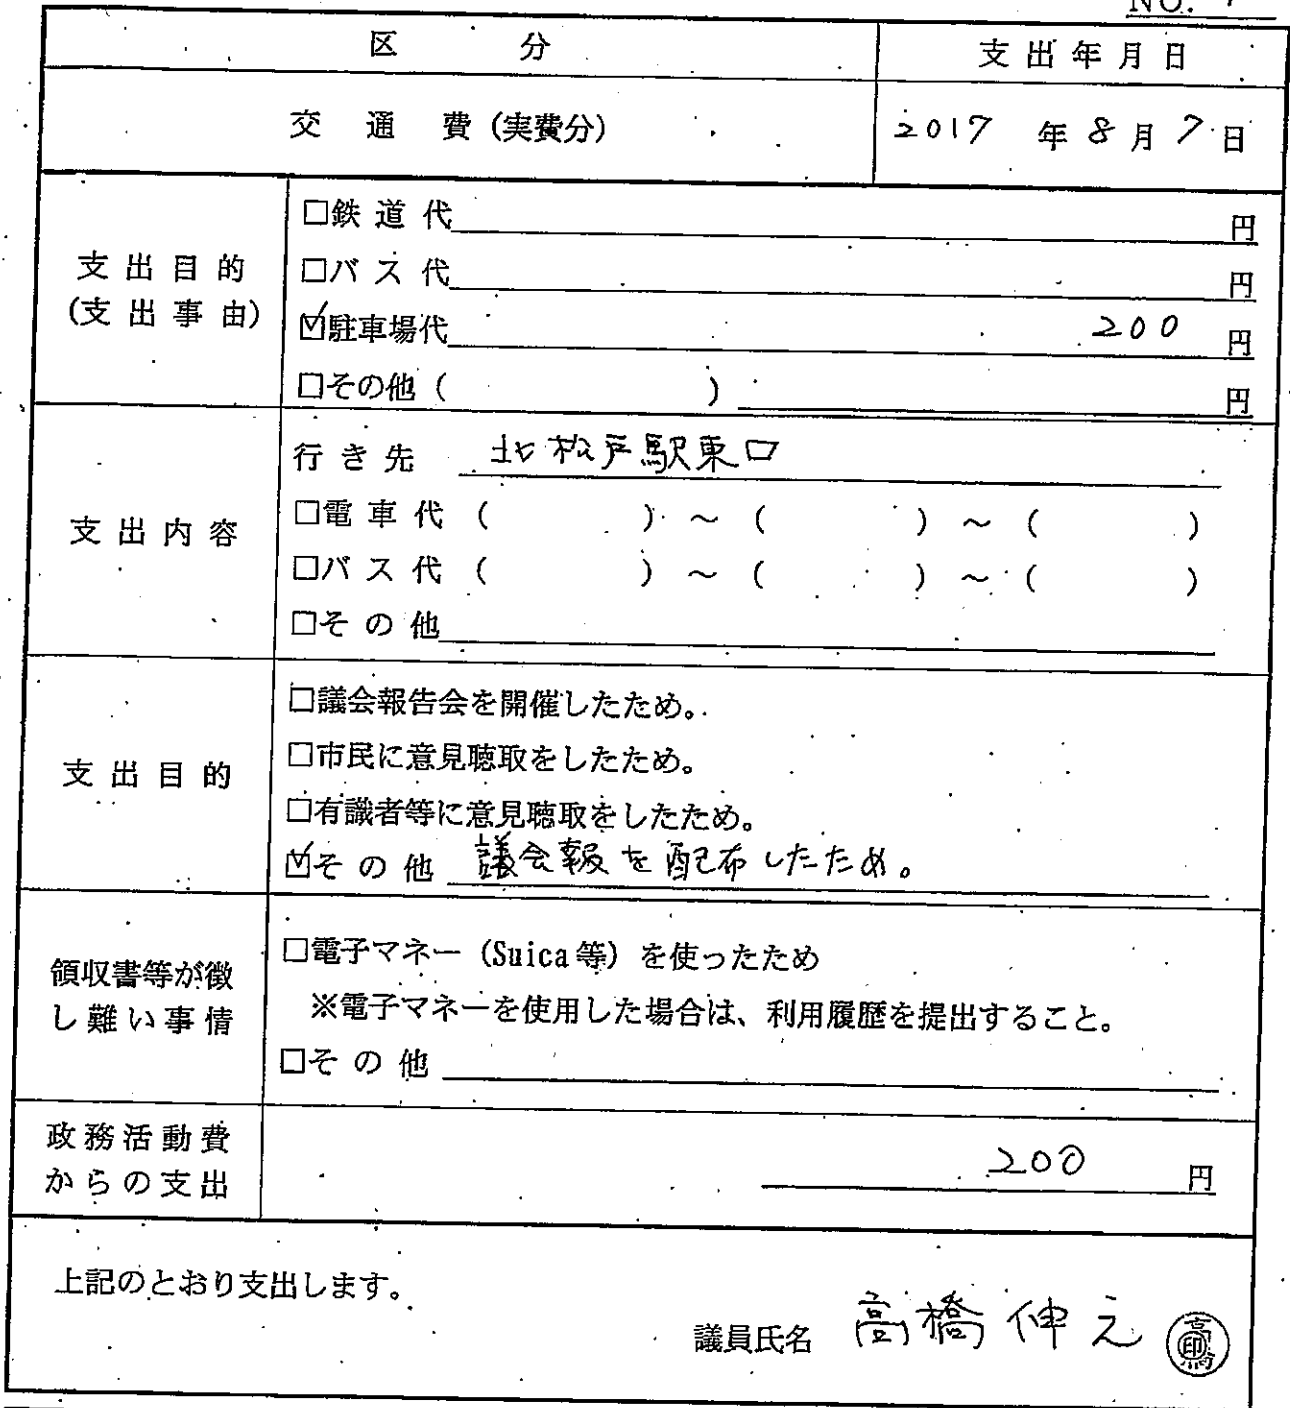 NO.
区 分 支出年月日
交 通 費 (実費分) 2017 年 8 月 7 日
支出目的
(支出事由)
□鉄道代 円
□バス代 円
☑駐車場代 200 円
□その他 ( ) 円
支出内容
行き先 北松戸駅東口
□電車代 ( ) ～ ( ) ～ ( )
□バス代 ( ) ～ ( ) ～ ( )
□その他
支出目的
□議会報告会を開催したため。
□市民に意見聴取をしたため。
□有識者等に意見聴取をしたため。
☑その他 議会報を配布したため。
領収書等が徴
し難い事情
□電子マネー (Suica等) を使ったため
※電子マネーを使用した場合は、利用履歴を提出すること。
□その他
政務活動費
からの支出
200 円
上記のとおり支出します。
議員氏名 高橋伸之 印